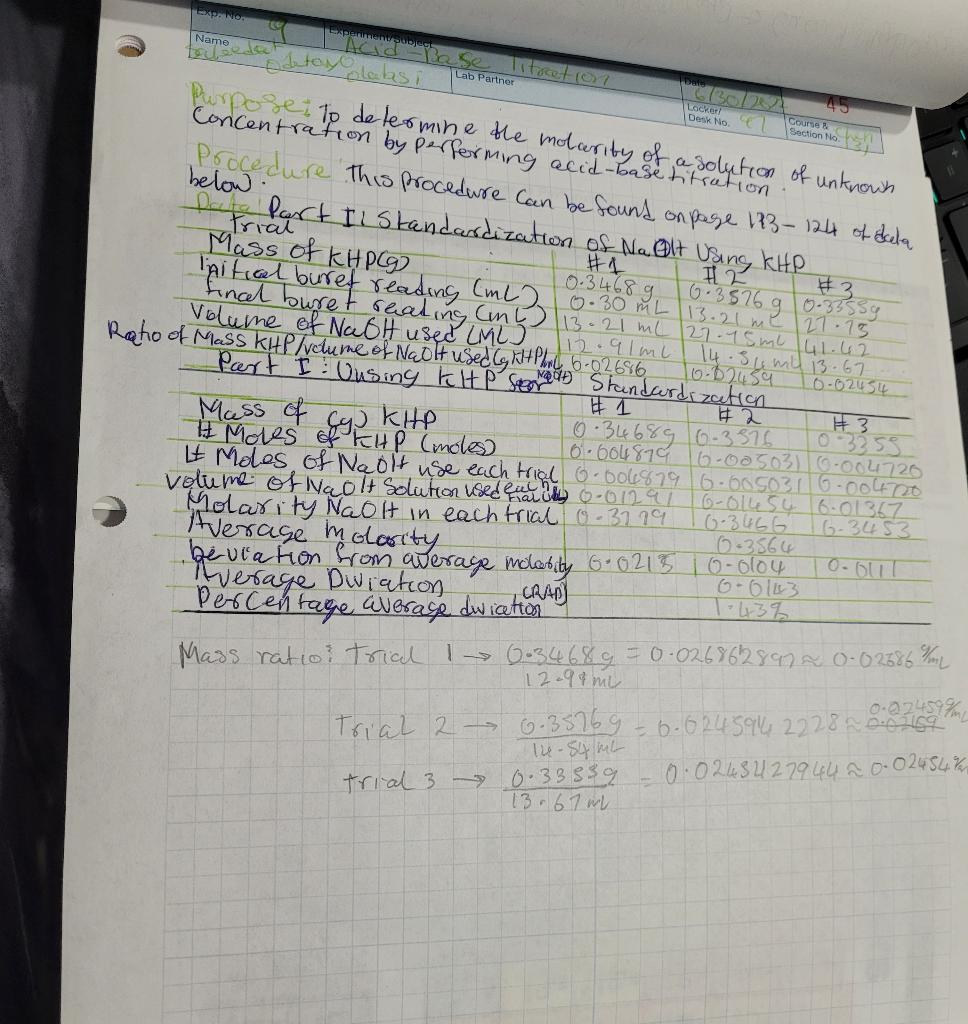 Exp. No. 9 Experiment/Subject Acid-Base Titration
Name Lab Partner Date 6/30/202 45
Locker/ Desk No. 97 Course & Section No.
Purpose: To determine the molarity of a solution of unknown
concentration by performing acid-base titration.
Procedure This procedure can be found on page 113-124 of data
below.
Data: Part I: Standardization of NaOH Using KHP
Trial #1 #2 #3
Mass of KHP(g) 0.3468g 0.3576g 0.3355g
Initial buret reading (mL) 0.30 mL 13.21 mL 27.75
final buret reading (mL) 13.21 mL 27.75mL 41.42
Volume of NaOH used (ML) 12.91mL 14.54mL 13.67
Ratio of Mass KHP/volume of NaOH used (g KHP/mL NaOH) 0.02686 0.02459 0.02454
Part I: Uusing KHP Standardization
Mass of (g) KHP #1 #2 #3
0.3468g 0.3576 0.3355
# Moles of KHP (moles) 0.004879 0.005031 0.004720
# Moles of NaOH use each trial 0.004879 0.005031 0.004720
Volume of NaOH Solution used each trial 0.01291 0.01454 0.01367
Molarity NaOH in each trial 0.3779 0.3466 0.3453
Average molarity 0.3564
Deviation from average molarity 0.0215 0.0104 0.0111
Average Dwiation 0.0143
Percentage average dwiation (RAD) 1.43%
Mass ratio: Trial 1 → 0.3468g = 0.026862897 ≈ 0.02686 g/mL
12.91mL
Trial 2 → 0.3576g = 0.0245942228 ≈ 0.02459 g/mL
14.54 mL
trial 3 → 0.3355g = 0.0245427944 ≈ 0.02454 g/mL
13.67 mL